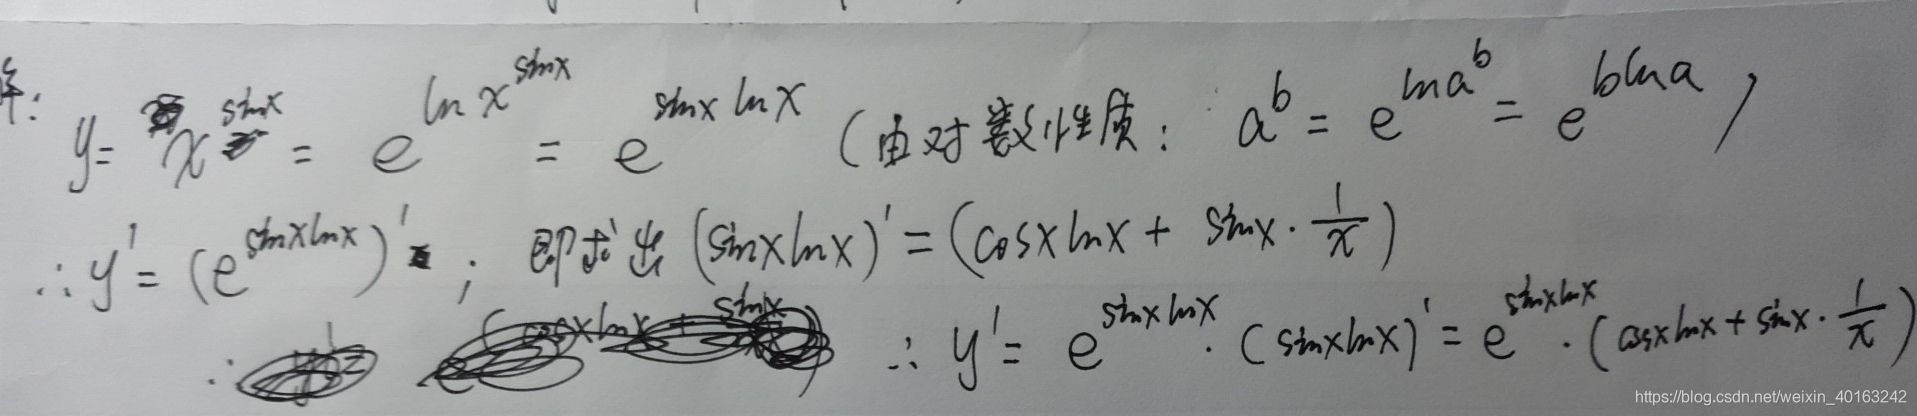 解: y = x^{sinx} = e^{ln x^{sinx}} = e^{sinx lnx} (由对数性质: a^b = e^{ln a^b} = e^{b ln a})
∴ y' = (e^{sinx lnx})' ; 即求出 (sinx lnx)' = (cosx lnx + sinx · 1/x)
∴ y' = e^{sinx lnx} · (sinx lnx)' = e^{sinx lnx} · (cosx lnx + sinx · 1/x)
https://blog.csdn.net/weixin_40163242